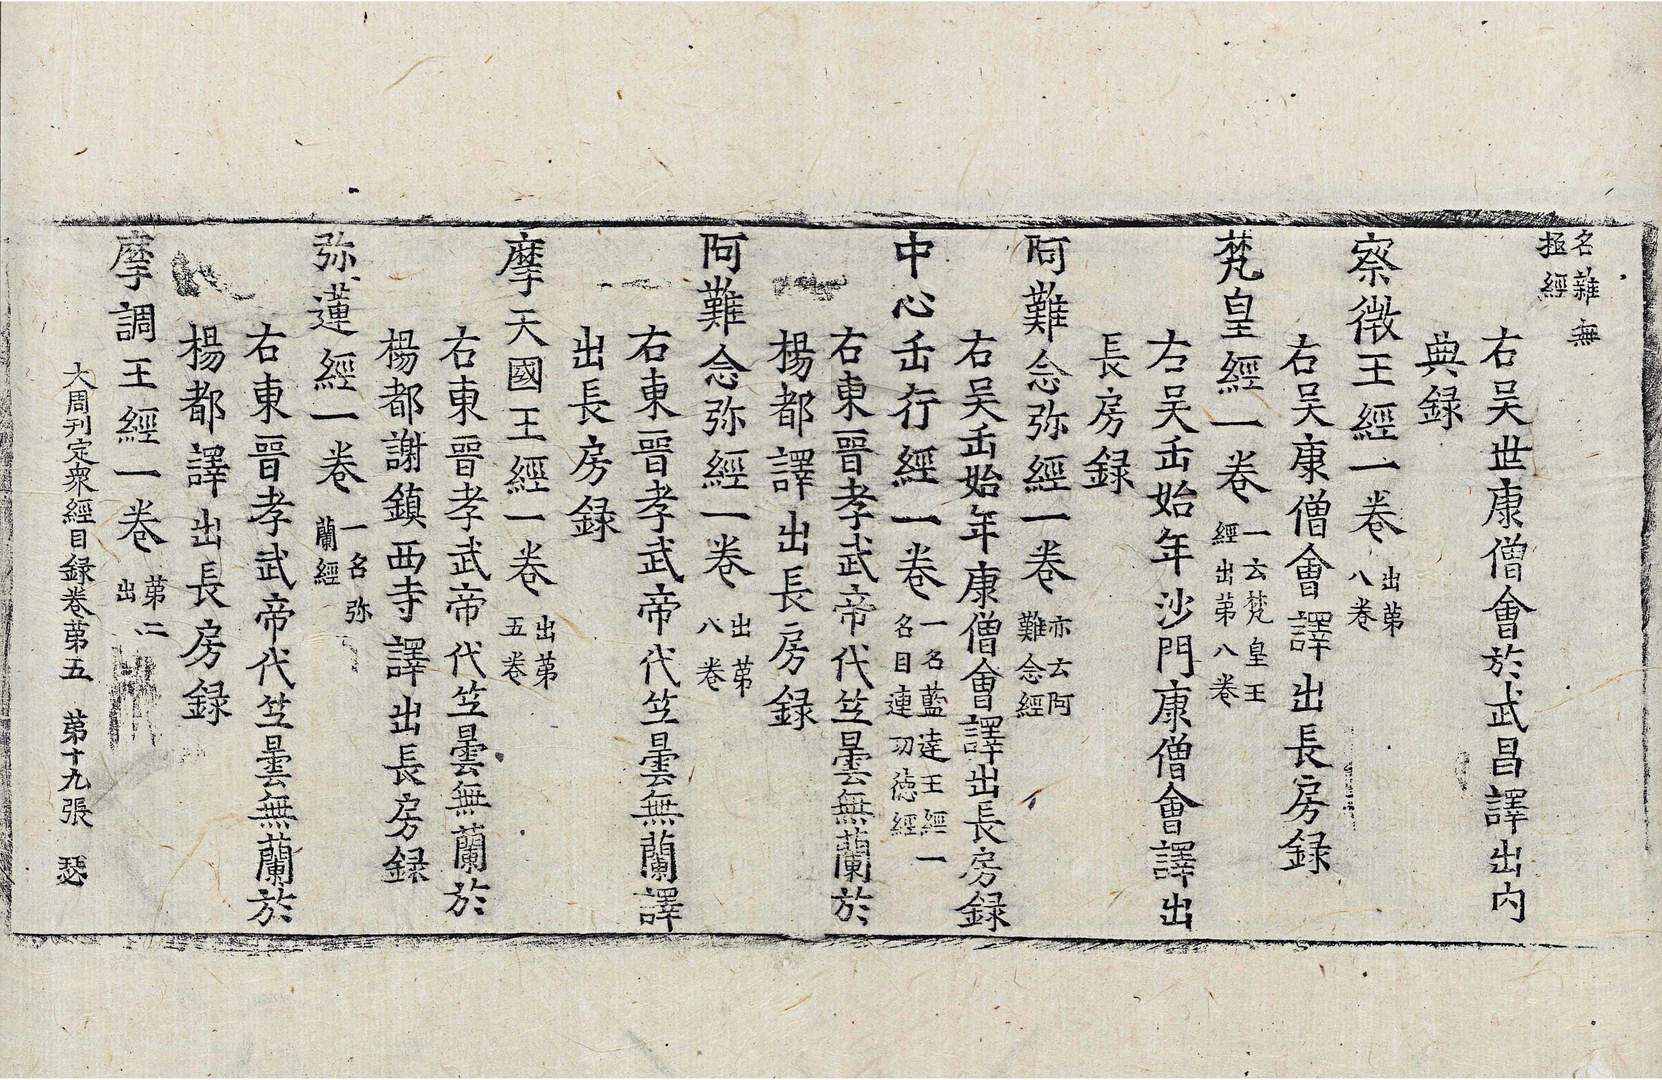 名難無
極經
右吴世康僧會於武昌譯出内
典録
察微王經一卷 出苐
八卷
右吴康僧會譯出長房録
梵皇經一卷 一云梵皇王
經出苐八卷
右吴𦈢始年沙門康僧會譯出
長房録
阿難念弥經一卷 亦云阿
難念經
右吴𦈢始年康僧會譯出長房録
中心𦈢行經一卷 一名藍達王經一
名目連功徳經
右東晉孝武帝代竺曇無蘭於
楊都譯出長房録
阿難念弥經一卷 出苐
八卷
右東晉孝武帝代竺曇無蘭譯
出長房録
摩天國王經一卷 出苐
五卷
右東晉孝武帝代竺曇無蘭於
楊都謝鎮西寺譯出長房録
弥蓮經一卷 一名弥
蘭經
右東晉孝武帝代竺曇無蘭於
楊都譯出長房録
摩調王經一卷 苐二
出
大周刊定衆經目録卷苐五 苐十九張 瑟